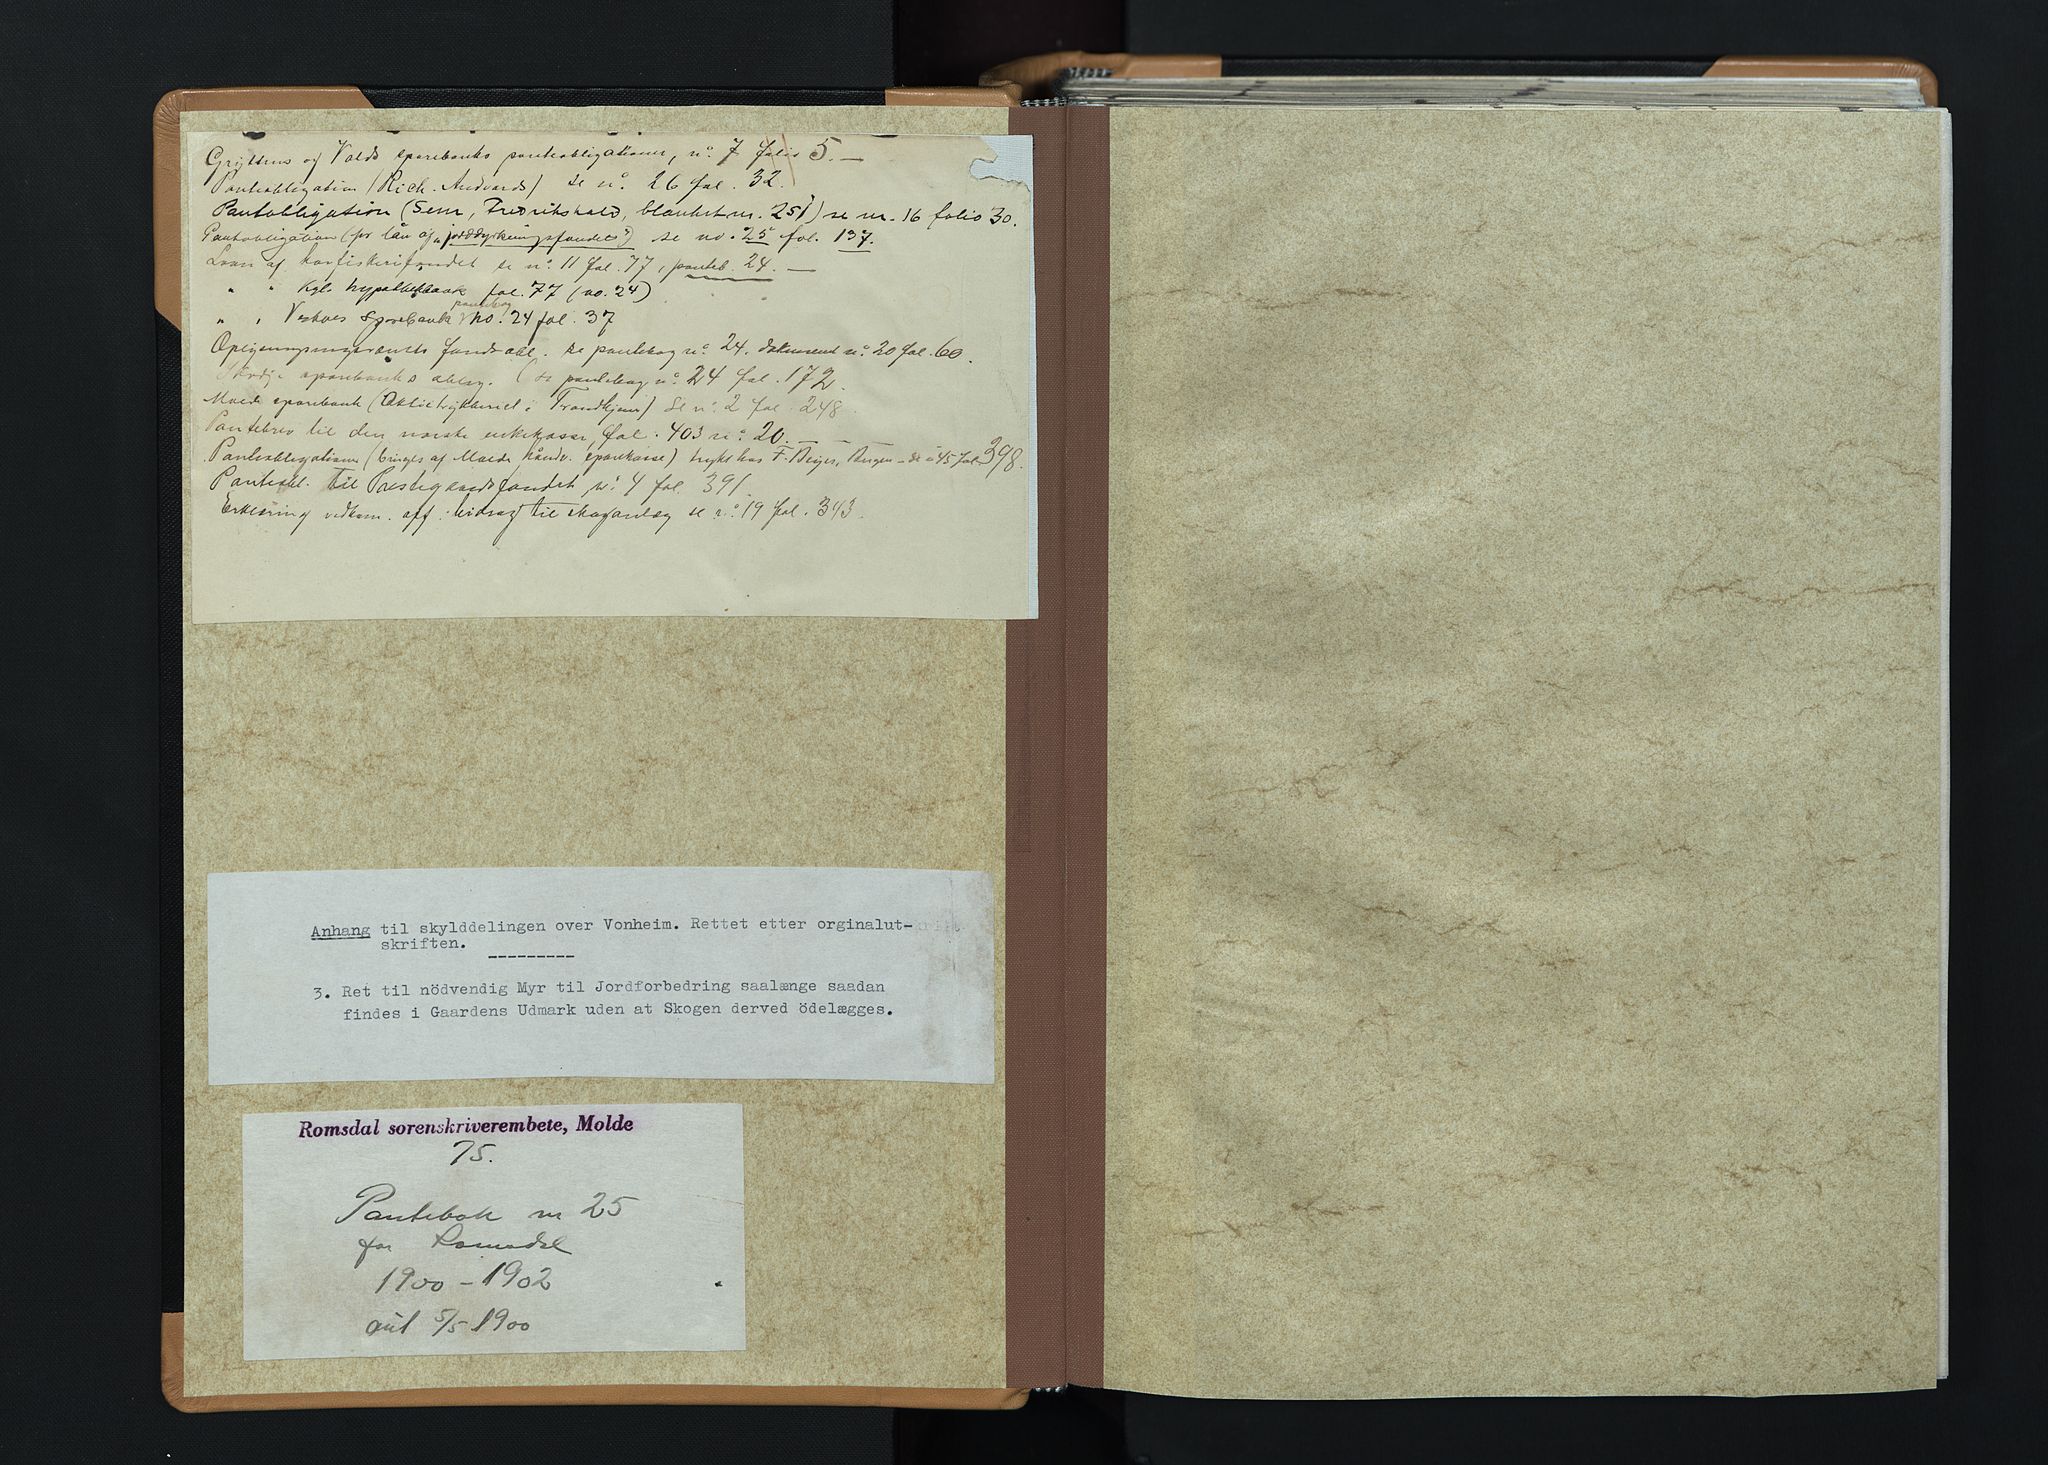 Gryttens og Volds sparebanks panteobligationer, no. 7 folio 5. —
Panteobligation (Rich. Andvords) se no. 26 fol. 32.
Pantobligation (Sem, Fredrikshald, blanket nr. 251) se nr. 16 folio 30.
Panteobligation (for lån af "jorddyrkningsfondet") se no. 25 fol. 137.
Laan af havfiskerifondet se no. 11 fol. 77, panteb. 24. —
" " Kgl. hypothekbank fol. 77 (no. 24)
" " Vestnes Sparebank pantebog no. 24 fol. 37
fonds obl. se pantebog no. 24. dokument no. 20 fol. 60.
sparebanks oblig. (se pantebog no. 24 fol. 172.
Molde sparebank (Aktietrykkeriet i Trondhjem) se no. 2 fol. 248.
Pantebrev til den norske enkekasse, fol. 403 no. 20. —
Panteobligation (bruges af Molde håndv. sparekasse) trykt hos F. Beyer, Bergen – se no 45 fol. 398.
Panteobl. til Prestegaardsfondet, no. 4 fol. 391.
Erklæring vedkom. off. bidrag til skoganlæg se no. 19 fol. 343.
Anhang til skylddelingen over Vonheim. Rettet etter orginalut-
skriften.
---------
3. Ret til nödvendig Myr til Jordforbedring saalænge saadan
findes i Gaardens Udmark uden at Skogen derved ödelægges.
Romsdal sorenskriverembete, Molde
75.
Pantebok nr 25
for Romsdal
1900 – 1902
aut 5/5 1900